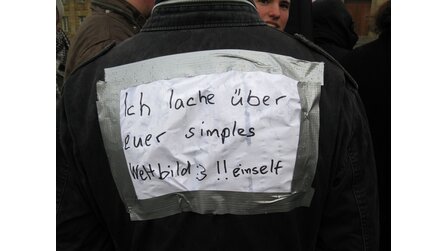 Ich lache über
euer simples
Weltbild :) !! einself